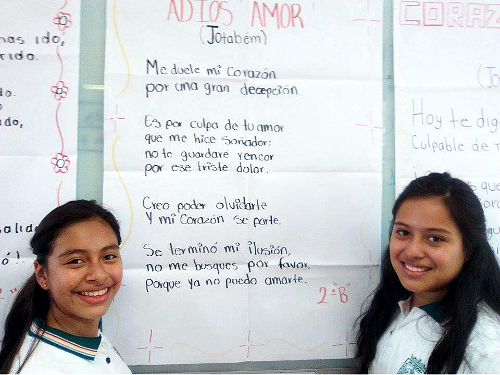 nas ido,
rido.
do.
ado,
ó!
ADIOS AMOR
(Jotabém)
Me duele mi Corazón
por una gran decepción.
Es por culpa de tu amor
que me hice soñador;
no te guardare rencor
por ese triste dolor.
Creo poder olvidarte
Y mi Corazón se parte.
Se terminó mi ilusión,
no me busques por favor,
porque ya no puedo amarte.
2="B"
CORAZ
(Jo
Hoy te dig
Culpable de